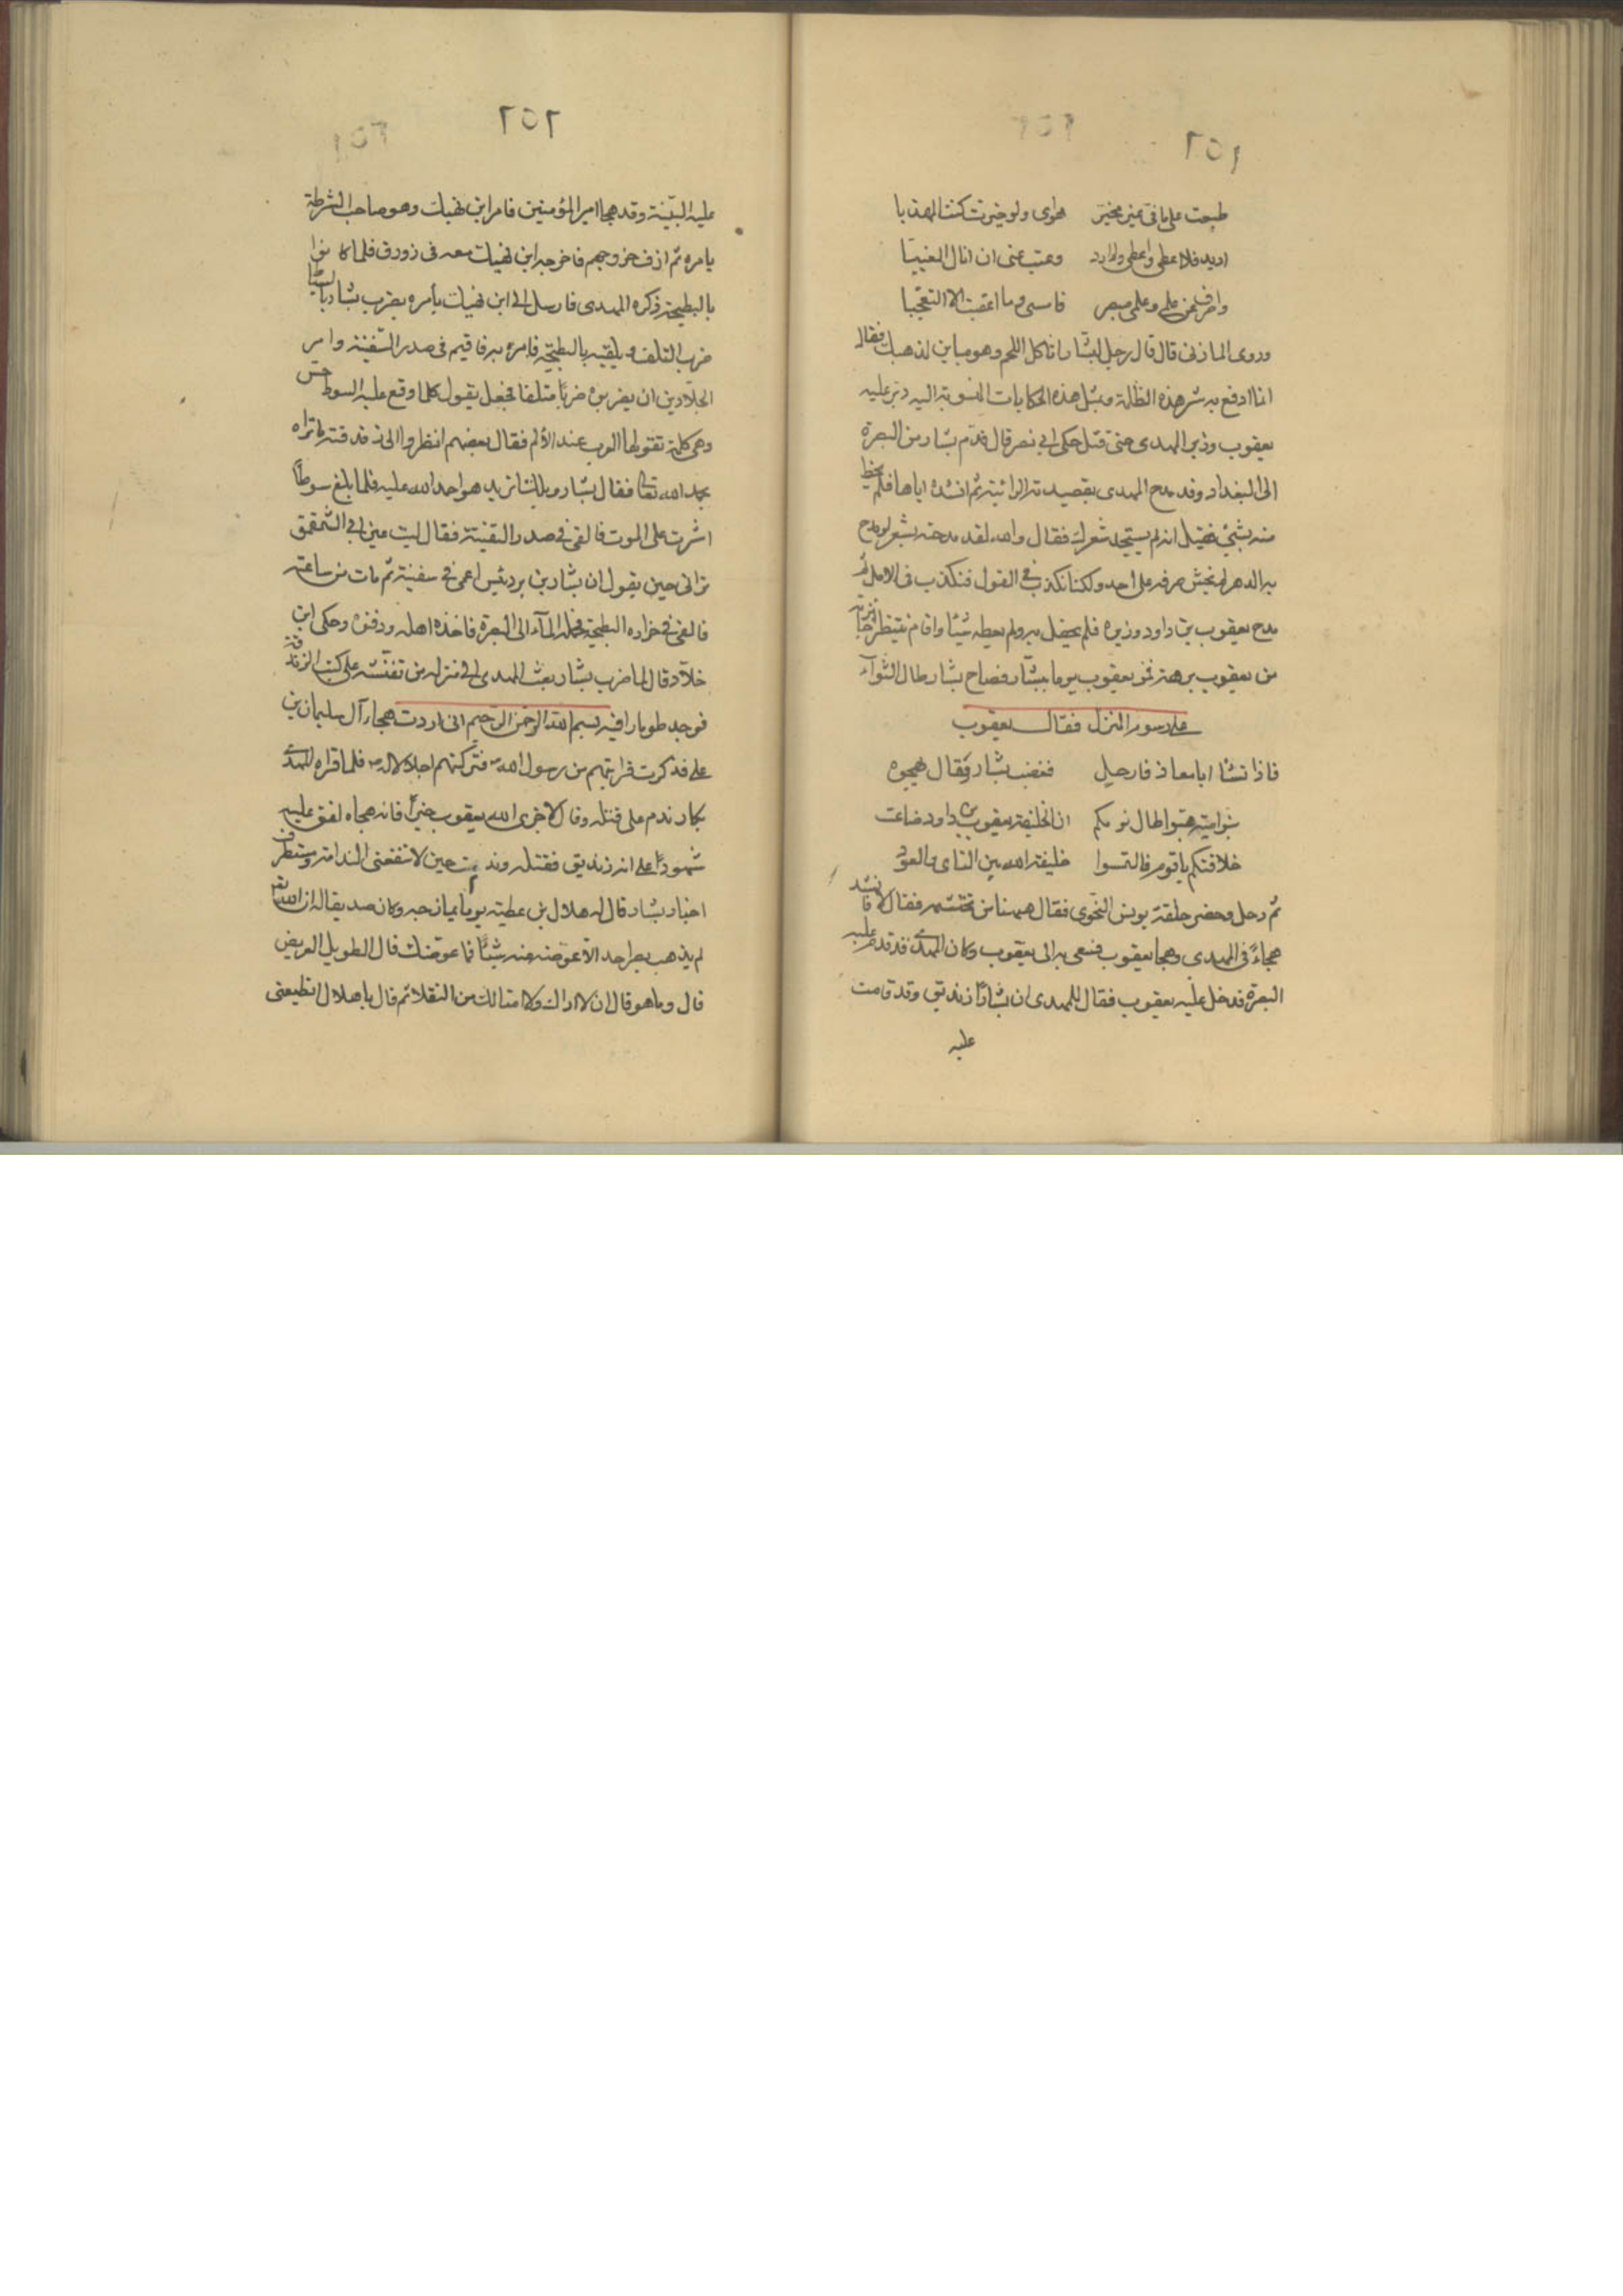 ٢٥١
طبعت على ما في غير مخير هواي ولو خيرت كنت المهذبا
اريد فلا اعطى واعطى ولم ارد وغيب عني ان انال المغيبا
واصرف عن علمي وعلمي مبصر فامسي وما اعقبت الا التعجبا
وروى المازني قال قال رجل لبشار اتاكل اللحم وهو مباين لمذهبك فقال
انما ادفع به شر هذه الظلمة وبمثل هذه الحكايات المنسوبة اليه دبر عليه
يعقوب وزير المهدي حتى قتل حكى ابي نصر قال قدم بشار من البصرة
الى البغداد وقد مدح المهدي بقصيدته الرائية ثم انشده اياها فلم يحظ
منه بشيء فقيل انه لم يستجد شعرك فقال والله لقد مدحته بشعر لو مدح
به الدهر لم يخش صرفه على احد ولكنا نكذب في القول فنكذب في الامل ثم
مدح يعقوب بن داود وزيره فلم يحفل به ولم يعطه شيئا واقام ينتظر
من يعقوب برهة فمر يعقوب يوما ببشار فصاح بشار طال الثواء
على رسوم المنزل فقال يعقوب
فاذا تشا ابا معاذ فارحل فغضب بشار وقال يهجوه
بنو امية هبوا طال نومكم ان الخليفة يعقوب بن داود ضاعت
خلافتكم يا قوم فالتمسوا خليفة الله بين الناي والعود
ثم دخل وحضر حلقة يونس النحوي فقال ههنا من تحتشم فقال لا فانشد
هجاء في المهدي وهجا يعقوب فسعى به الى يعقوب وكان المهدي قد قدم عليه
البصرة فدخل عليه يعقوب فقال للمهدي ان بشارا زنديق وقد قامت
عليه
٢٥٢
عليه البينة وقد هجا امير المؤمنين فامر ابن نهيك وهو صاحب الشرطة
يامره ثم ازف خروجهم فاخرجه ابن نهيك معه في زورق فلما كانوا
بالبطيحة ذكره المهدي فارسل الى ابن نهيك يامره بضرب بشار بالسياط
ضرب التلف ويلقيه بالبطيحة فامره به فاقيم في صدر السفينة وامر
الجلادين ان يضربوه ضربا متلفا فجعل يقول كلما وقع عليه السوط حس
وهي كلمة تقولها العرب عند الألم فقال بعضهم انظروا الى زندقته ما تراه
يحمد الله تعالى فقال بشار ويلك اثريد هو احمد الله عليه فلما بلغ سوطا
اشرت على الموت فالقى في صدر السفينة فقال ليت عين ابي الشمقمق
تراني حين يقول ان بشار بن برد تيس اعمى في سفينة ثم مات من ساعته
فالقى في خرارة البطيحة فحمله الماء الى البصرة فاخذه اهله ودفنوه وحكى ابن
خلاد قال لما ضرب بشار بعث المهدي الى منزله من تفتشه على كتب الزندقة
فوجد طومارا فيه بسم الله الرحمن الرحيم اني اردت هجاء آل سليمان بن
علي فذكرت قرابتهم من رسول الله ص فتركتهم اجلالا له ص فلما قراه المهدي
بكا وندم على قتله وقال لا جزى الله يعقوب خيرا فانه هجاه لفق عليه
شهودا على انه زنديق فقتله وندمت حين لا تنفعني الندامة ومستظرف
اخبار بشار قال له هلال بن عطية يوما يمازحه وكان صديقا له ان الله تع
لم يذهب بصر احد الا عوضه عنه شيئا فما عوضك قال الطويل العريض
قال وما هو قال ان لا اراك ولا امثالك من الثقلا ثم قال يا هلال اتطيعني